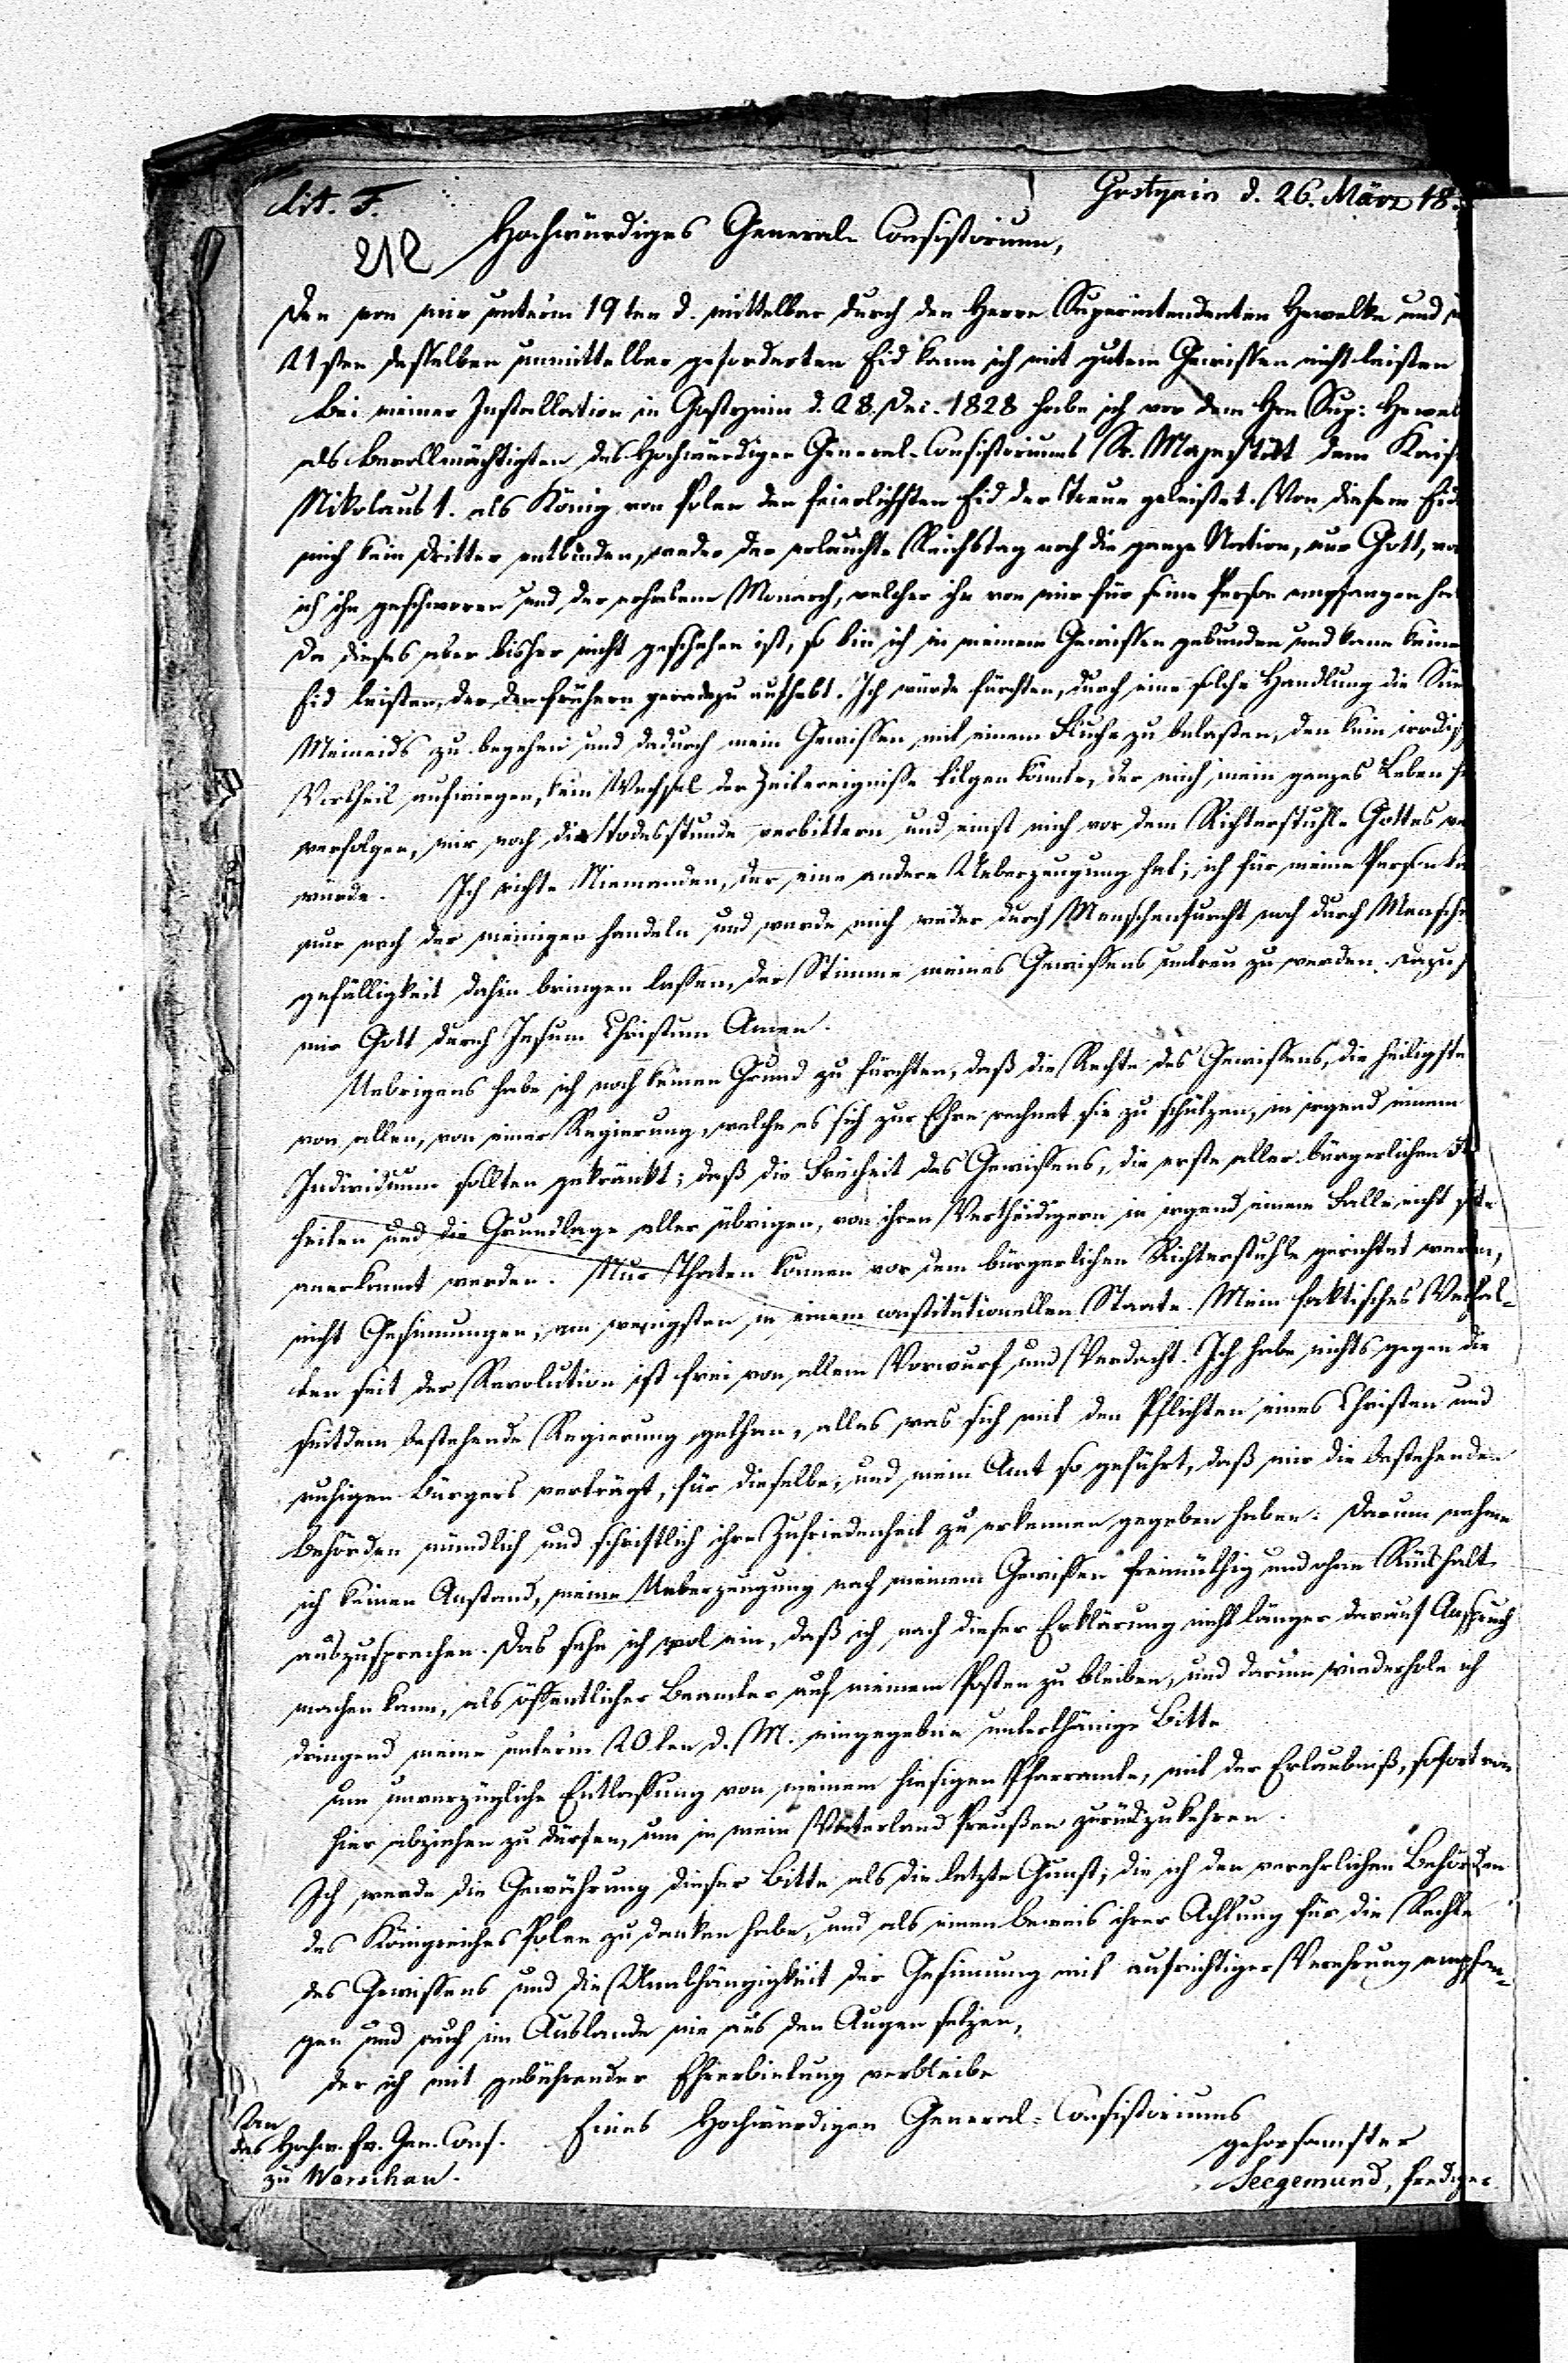 Lit. F.
Gostynin d. 26. März 18
212
Hochwürdiges General-Consistorium,
Den von mir unterm 19ten d. mittelbar durch den Herrn Superintendenten Hewelke und
21sten desselben unmittelbar geforderten Eid kann ich mit gutem Gewissen nicht leisten
Bei meiner Installation in Gostynin d. 28. Dec. 1828 habe ich vor dem Hrn Sup: Hewel
als Bevollmächtigten des Hochwürdigen General-Consistoriums Sr. Majestät dem Kais
Nikolaus 1. als König von Polen den feierlichsten Eid der Treue geleistet. Von diesem Eid
mich kein Dritter entbinden, weder der erlauchte Reichstag noch die ganze Nation, nur Gott,
ich ihn geschworen und der erhabene Monarch, welcher ihn von mir für seine Person empfangen hat
Da dieses aber bisher nicht geschehen ist, so bin ich in meinem Gewissen gebunden und kann keine
Eid leisten, der den frühern geradezu aufhebt. Ich würde fürchten, durch eine solche Handlung die Sün
Meineids zu begehen und dadurch mein Gewissen mit einem Fluche zu belasten, den kein irdisch
Vortheil aufwiegen, kein Wechsel der Zeitereignisse tilgen könnte, der mich mein ganzes Leben
verfolgen, mir noch die Todesstunde verbittern und einst mich vor dem Richterstuhle Gottes
würde. Ich richte Niemanden, der eine andere Ueberzeugung hat; ich für meine Person
nur nach der meinigen handeln und werde mich weder durch Menschenfurcht noch durch Mensche
gefälligkeit dahin bringen lassen, der Stimme meines Gewissens untreu zu werden. Dazu
mir Gott durch Jesum Christum Amen.
Uebrigens habe ich noch keinen Grund zu fürchten, daß die Rechte des Gewissens, die heiligste
von allen, von einer Regierung, welche es sich zur Ehre rechnet sie zu schützen, in irgend einem
Individuum sollten gekränkt; daß die Freiheit des Gewissens, die erste aller bürgerlichen
heiten und die Grundlage aller übrigen, von ihren Vertheidigern in irgend einem Falle nicht
anerkannt werden. Nur Thaten können vor dem bürgerlichen Richterstuhle gerichtet werden,
nicht Gesinnungen, am wenigsten in einem constitutionellen Staate. Mein faktisches Verhal-
ten seit der Revolution ist frei von allem Vorwurf und Verdacht. Ich habe nichts gegen die
seitdem bestehende Regierung gethan, alles was sich mit den Pflichten eines Christen und
ruhigen Bürgers verträgt, für dieselbe, und mein Amt so geführt, daß mir die bestehenden
Behörden mündlich und schriftlich ihre Zufriedenheit zu erkennen gegeben haben. Darum nehme
ich keinen Anstand, meine Ueberzeugung nach meinem Gewissen freimüthig und ohne Rückhalt
auszusprechen. Das sehe ich wol ein, daß ich nach dieser Erklärung nicht länger darauf Anspruch
machen kann, als öffentlicher Beamter auf meinem Posten zu bleiben, und darum wiederhole ich
dringend meine unterm 20ten d. M. eingegebene unterthänige Bitte
um unverzügliche Entlassung von meinem hiesigen Pfarramte, mit der Erlaubniß, sofort von
hier abziehen zu dürfen, um in mein Vaterland Preußen zurückzukehren.
Ich werde die Gewährung dieser Bitte als die letzte Gunst, die ich den verehrlichen Behörden
des Königreiches Polen zu danken habe, und als einen Beweis ihrer Achtung für die Rechte
des Gewissens und die Unabhängigkeit der Gesinnung mit aufrichtiger Verehrung empfan-
gen und auch im Auslande nie aus den Augen setzen,
der ich mit gebührender Ehrerbietung verbleibe
Eines Hochwürdigen General-Consistoriums
An
das Hochw. Ev. Gen. Cons.
zu Warschau.
gehorsamster
Seegemund, Prediger